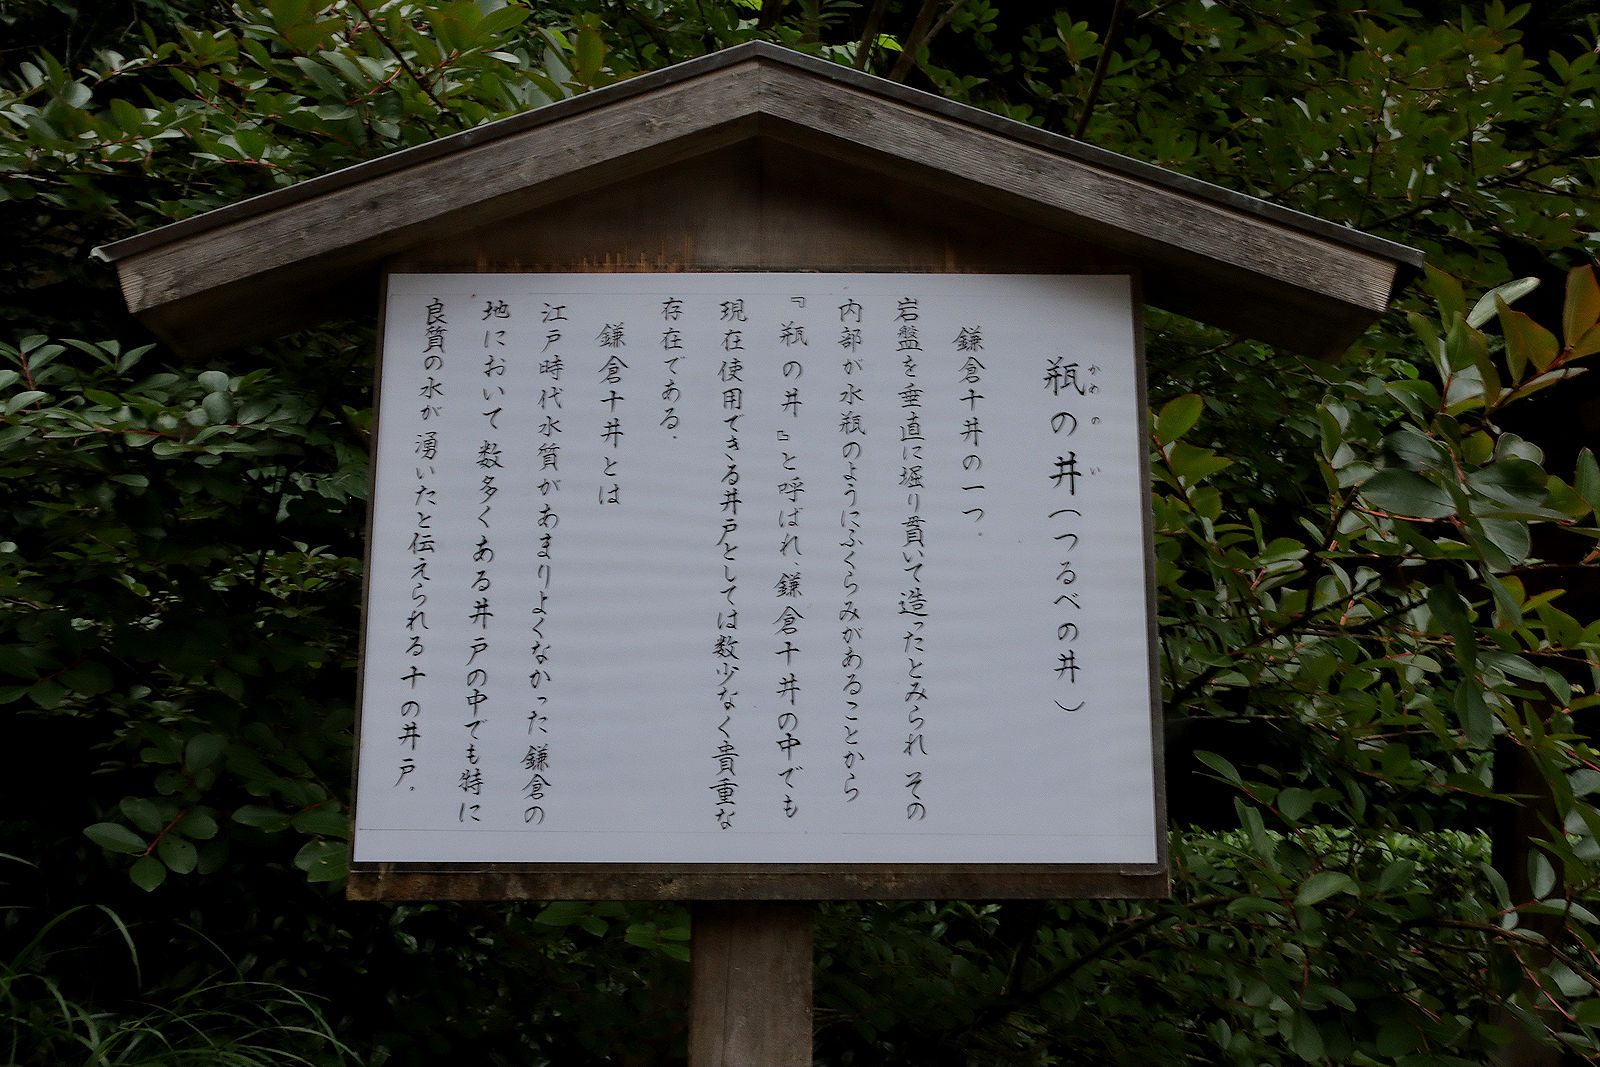 瓶の井(つるべの井)
かめ の い
鎌倉十井の一つ。
岩盤を垂直に堀り貫いて造ったとみられ その
内部が水瓶のようにふくらみがあることから
『瓶の井』と呼ばれ、鎌倉十井の中でも
現在使用できる井戸としては数少なく貴重な
存在である。
鎌倉十井とは
江戸時代水質があまりよくなかった鎌倉の
地において数多くある井戸の中でも特に
良質の水が湧いたと伝えられる十の井戸。